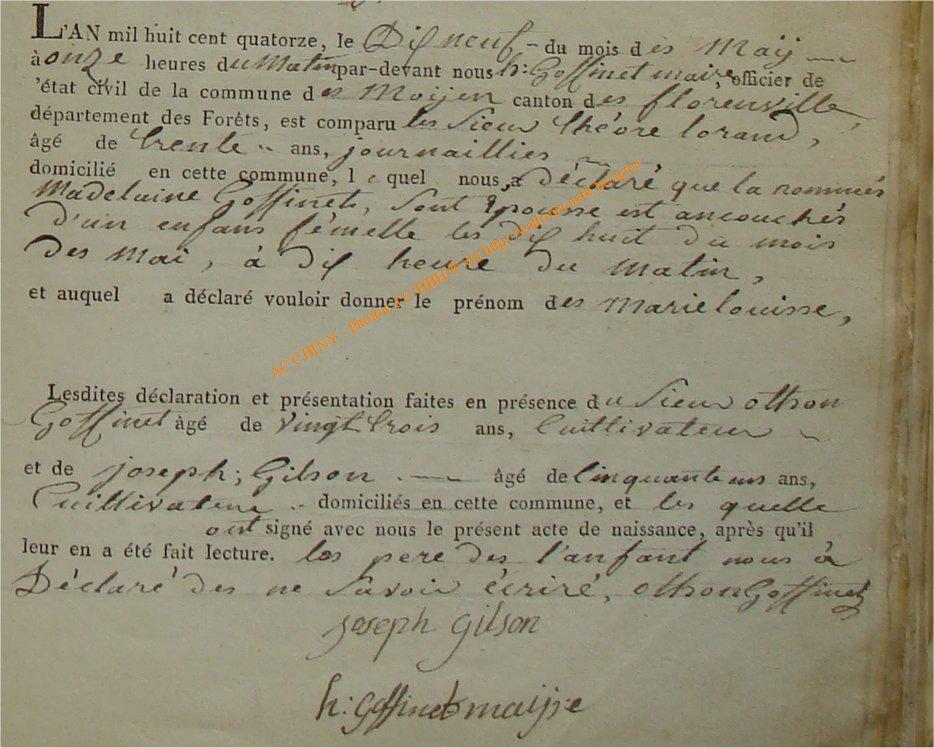 L'AN mil huit cent quatorze, le Dix neuf - du mois des Maÿ
à onze heures du Matin par-devant nous h: Goffinet maire, officier de
'état civil de la commune des Moÿen canton des florenville,
département des Forêts, est comparu les Sieur théore lorand,
âgé de trente ans, journaillies
domicilié en cette commune, le quel nous a déclaré que la nommés
Madelaine Goffinets, sont épousse est ancouchés
D'un enfans fémelle les dix huit du mois
des Mai, à dix heure du matin,
et auquel a déclaré vouloir donner le prénom des marielouisse,
AC CHINY - Photos
Lesdites déclaration et présentation faites en présence du Sieur othon
Goffinet âgé de vingt trois ans, Cuiltivateur
et de joseph; Gilson. âgé de Cinquante uns ans,
Cuiltivateur domiciliés en cette commune, et les quelle
ont signé avec nous le présent acte de naissance, après qu'il
leur en a été fait lecture. les pere des l'anfant nous à
Déclaré des ne savoir écriré, othon Goffinet
joseph gilson
h: goffinet maijre